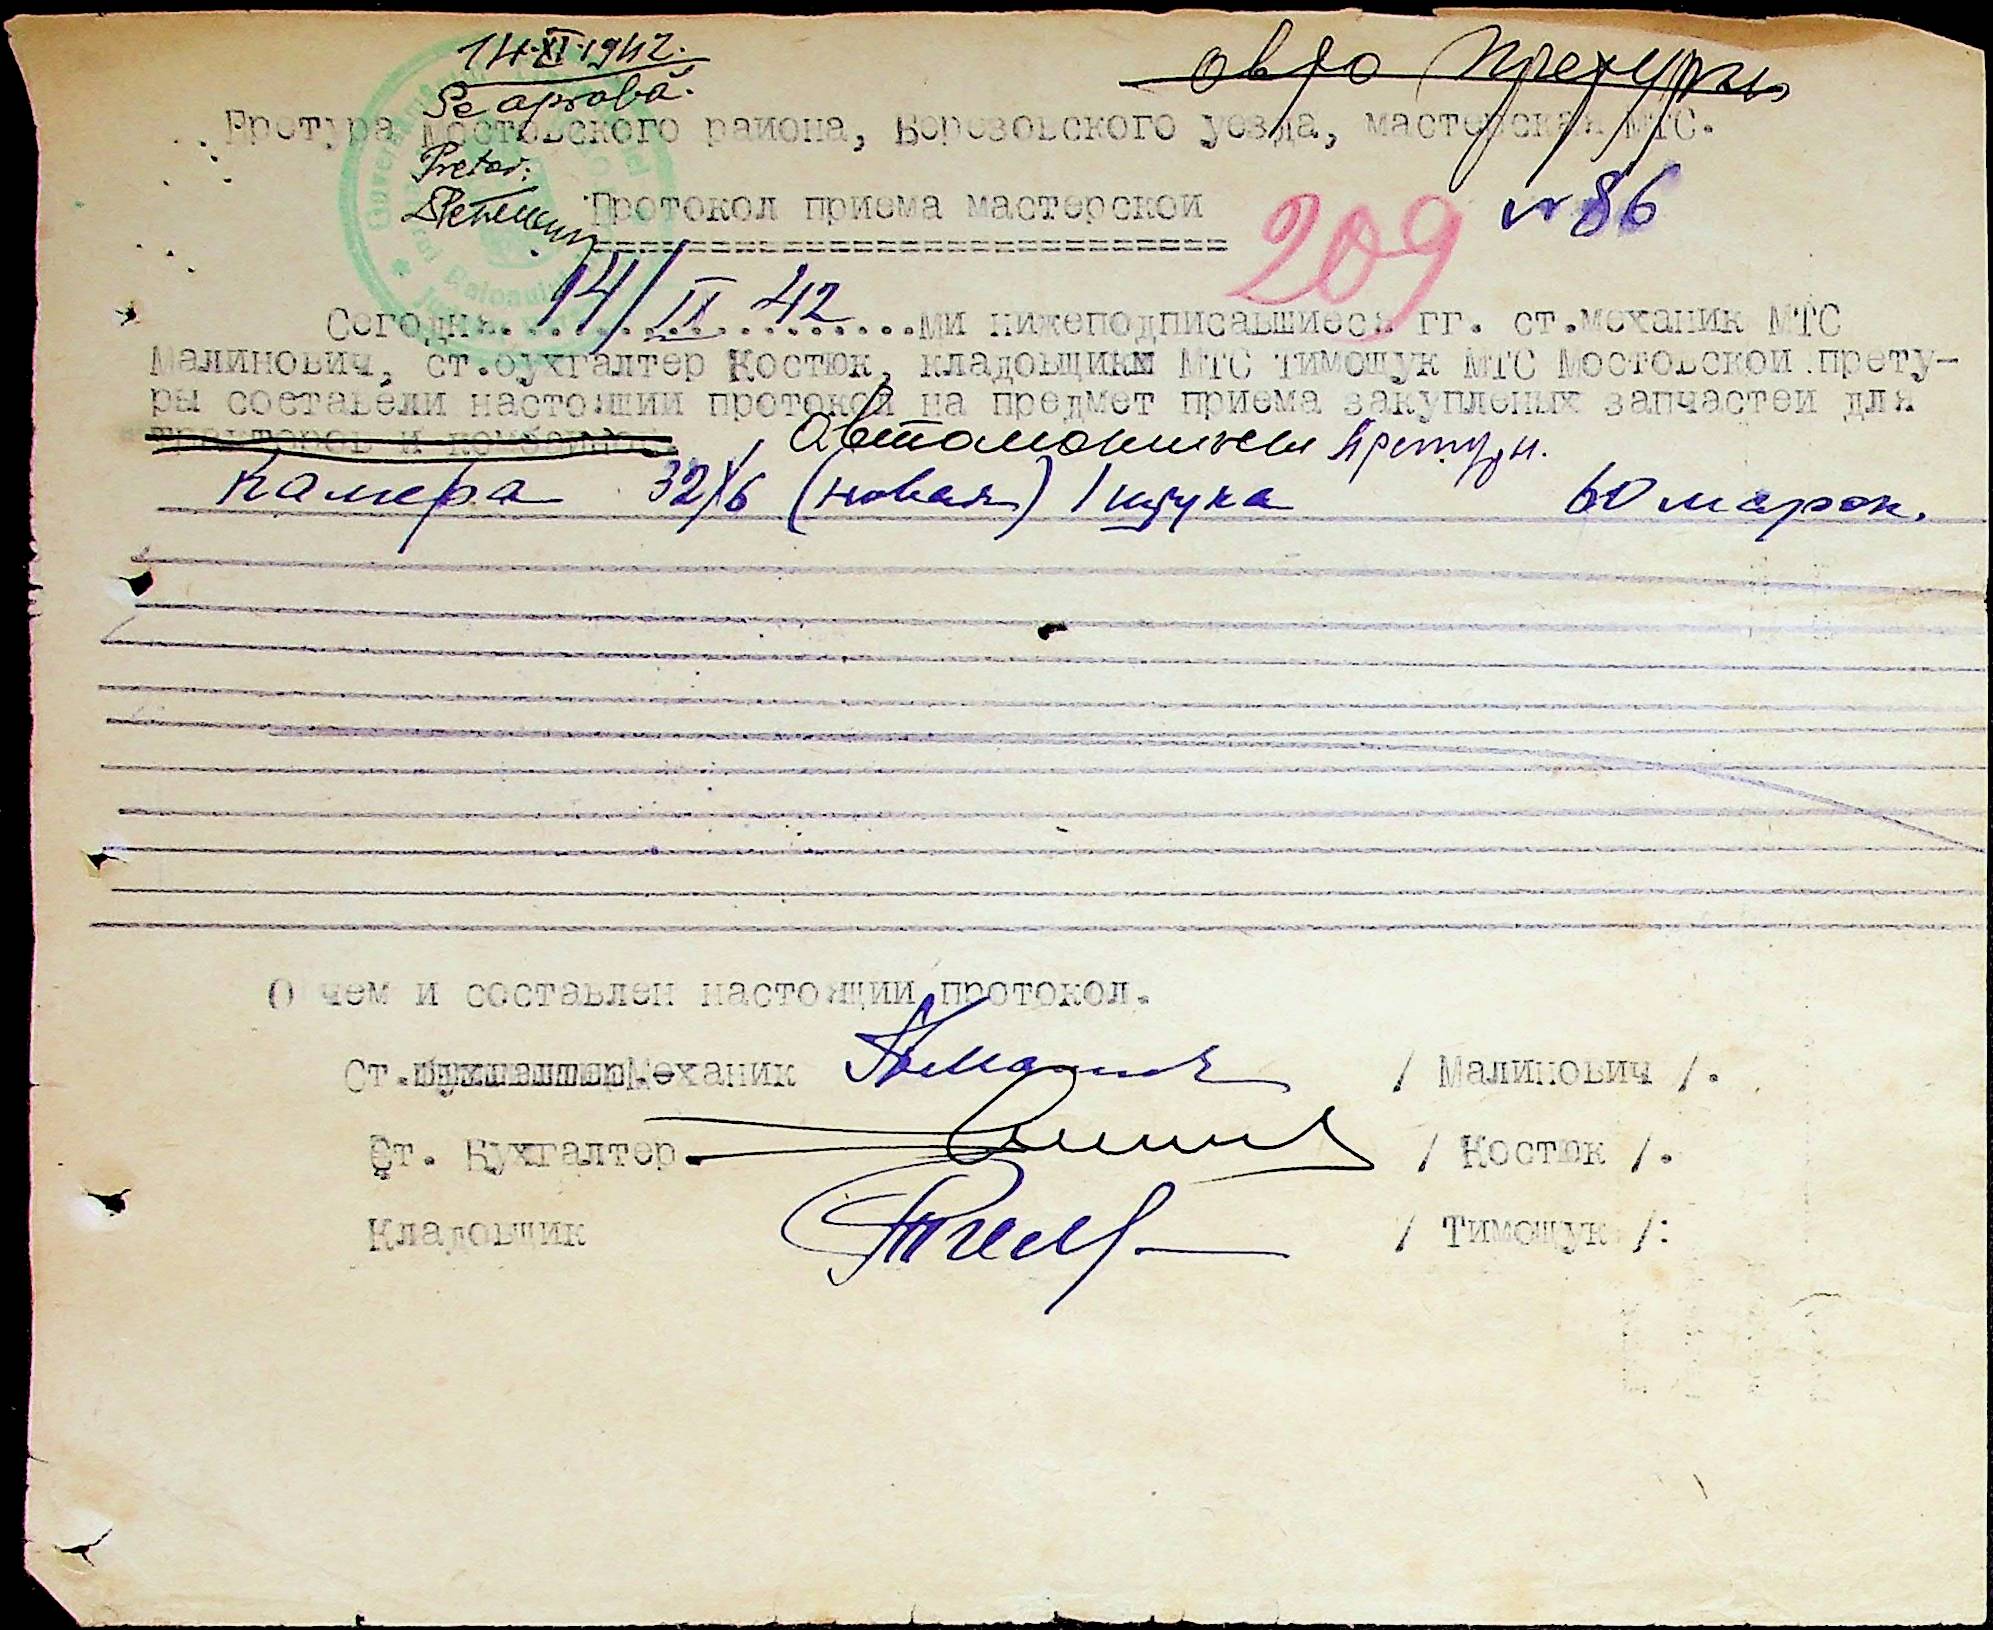 14·XI·1942.
Se aprobă.
Pretor:
авто Претуры
Претура Мостовского раиона, Березовского уезда, мастерская МТС.
Протокол приема мастерскои
№ 86
209
Сегодня. 14/XI 42 ...ми нижеподписавшиеся гг. ст.механик МТС
Малинович, ст.бухгалтер Костюк, кладовщики МТС Тимощук МТС Мостовскои прету-
ры составели настоящии протокол на предмет приема закупленых запчастеи для
тракторов и комбаинов. Автомошины Претуры.
Камера 32х6 (новая) 1 штука 60 марок.
О чем и составлен настоящии протокол.
Ст. Механик / Малинович /.
Ст. Бухгалтер. / Костюк /.
Кладовщик / Тимощук /: